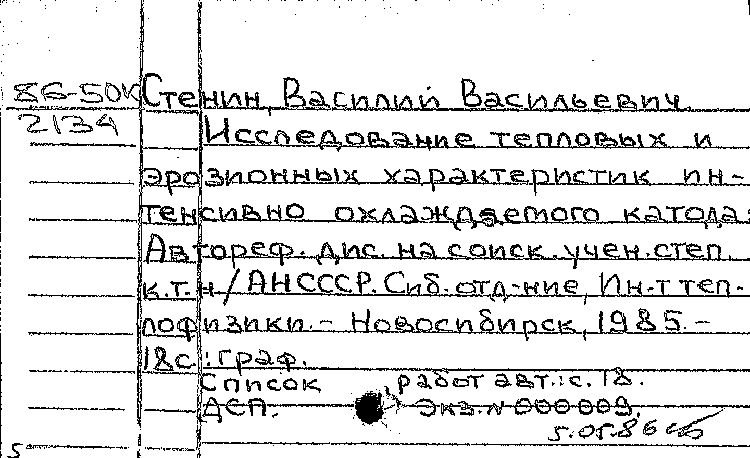 86-50К Стенин, Василий Васильевич.
2134 Исследование тепловых и
эрозионных характеристик ин-
тенсивно охлаждаемого катода:
Автореф. дис. на соиск. учен. степ.
к.т.н / АН СССР. Сиб. отд-ние, Ин-т теп-
лофизики. - Новосибирск, 1985. -
18с.: граф.
Список работ авт.: с. 18.
ДСП. Экз. N 000009.
5.05.86